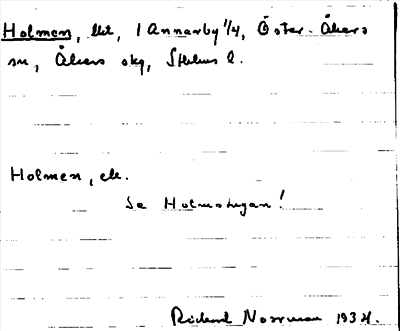 Holmen, lht, 1 Annarby 1/4, Öster-Åkers
sn, Åkers skg, Sthlms l.
Holmen, ell.
Se Holmstugan!
Richard Norrman 1934.